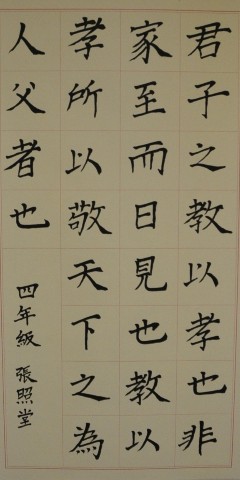 君子之教以孝也非
家至而日見也教以
孝所以敬天下之為
人父者也
四年級 張照堂